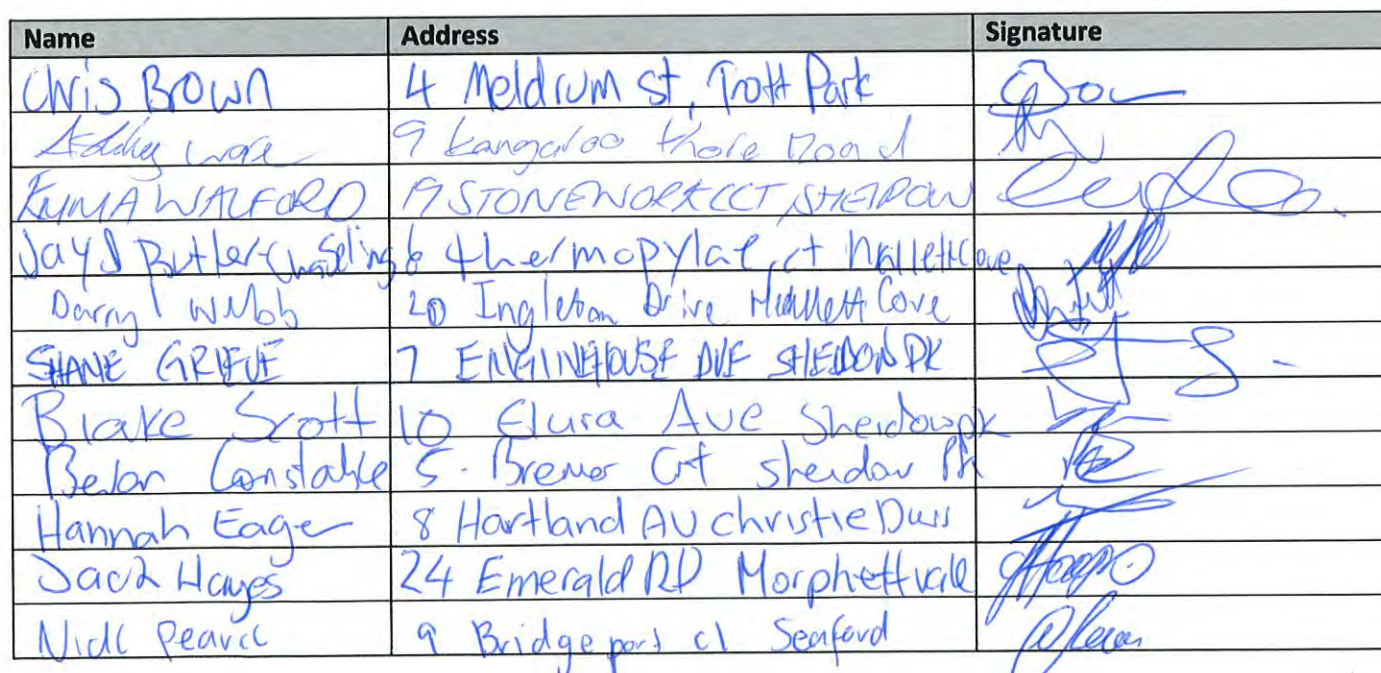 Name Address Signature
Chris Brown 4 Meldrum St, Trott Park
Ashley Ware 9 Kangaroo thorn Road
EMMA WALFORD 19 STONEWORK CCT, SHEIDOW
Jayd Butler-Chaseling 6 thermopylae ct Hallett Cove
Darryl Webb 20 Ingleton Drive Hallett Cove
SHANE GRIEVE 7 ENGINEHOUSE DVE SHEIDON PK
Blake Scott 10 Elura Ave Sheidowpk
Constable 5 Bremer Crt Sheidow Pk
Hannah Eager 8 Hartland AV christie Dwns
Jack Hayes 24 Emerald RD Morphettvale
Nick Pearce 9 Bridgeport cl Seaford